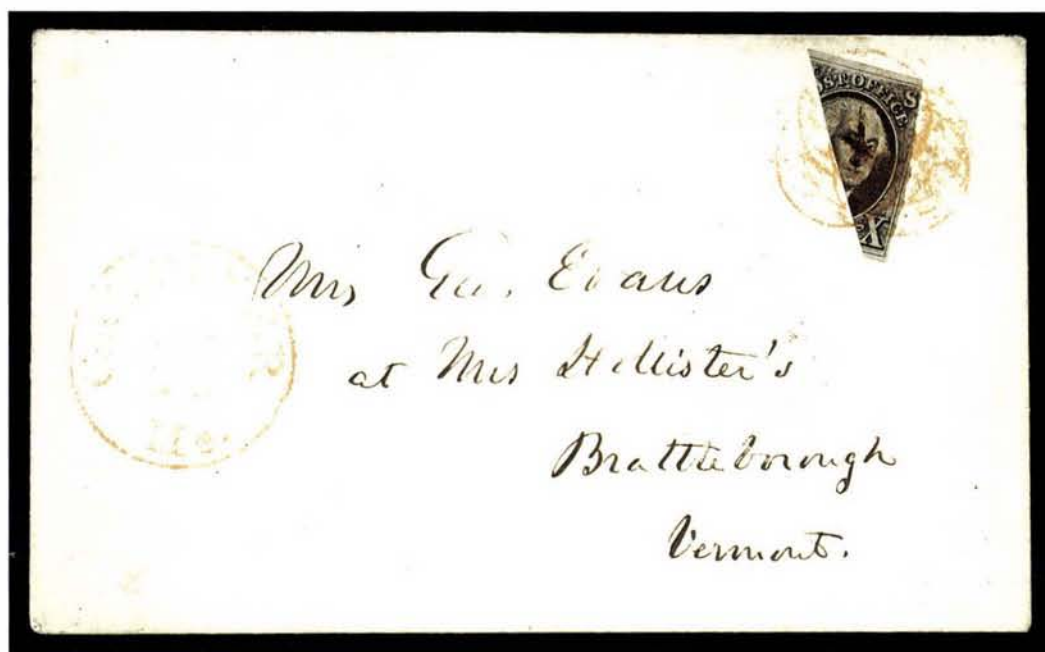 POST OFFICE S
X
Mrs Geo. Evans
at Mrs Hollister's
Brattleborough
Vermont.